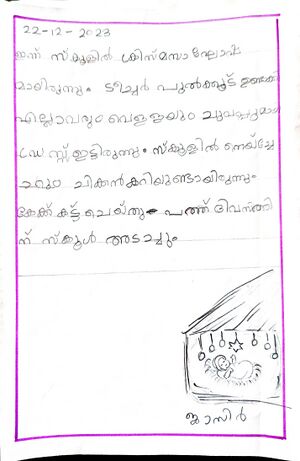 22-12-2023
ഇന്ന് സ്കൂളിൽ ക്രിസ്മസാഘോഷ
മായിരുന്നു. ടീച്ചർ പുൽക്കൂട് ഉണ്ടാക്കി
എല്ലാവരും വെള്ളയും ചുവപ്പുമായ
ഡ്രസ്സ് ഇട്ടിരുന്നു. സ്കൂളിൽ നെയ്ച്ചോ
റും ചിക്കൻകറിയുണ്ടായിരുന്നു
കേക്ക് കട്ട് ചെയ്തു പത്ത് ദിവസത്തി
ന് സ്കൂൾ അടച്ചും
ജാസിർ